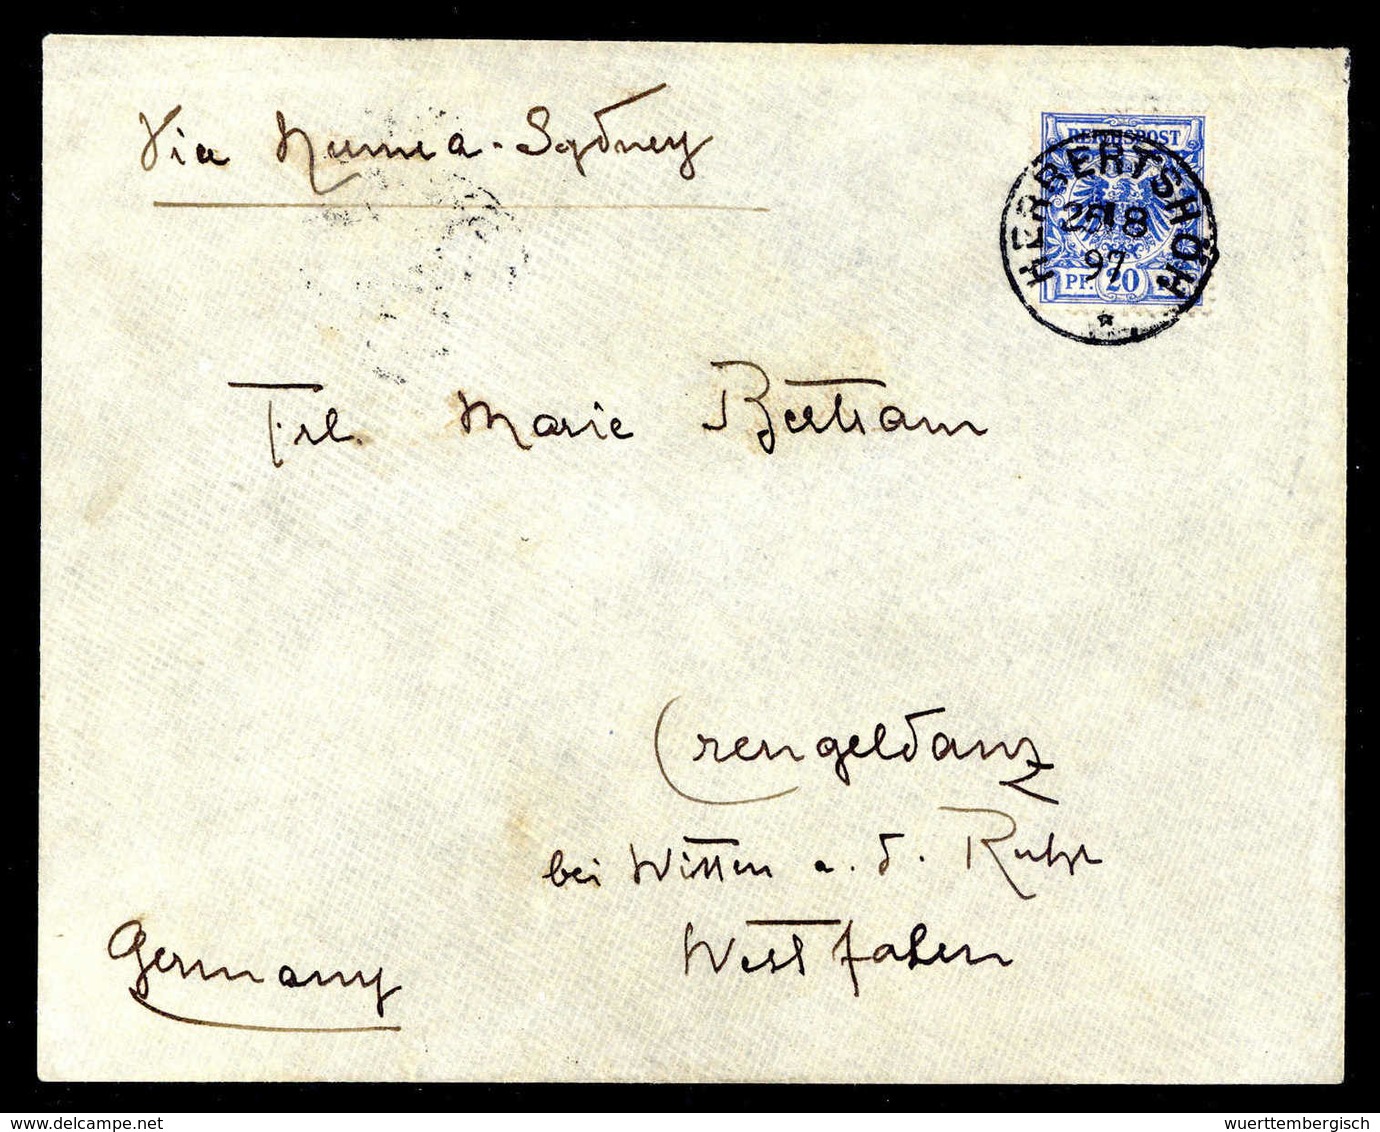 Via Numea-Sydney
REICHSPOST
HERBERTSHÖH
25 8
97
PF. 20
Frl. Marie Bertram
Crengeldanz
bei Witten a. d. Ruhr
Westfalen
Germany
delcampe.net
wuerttembergisch